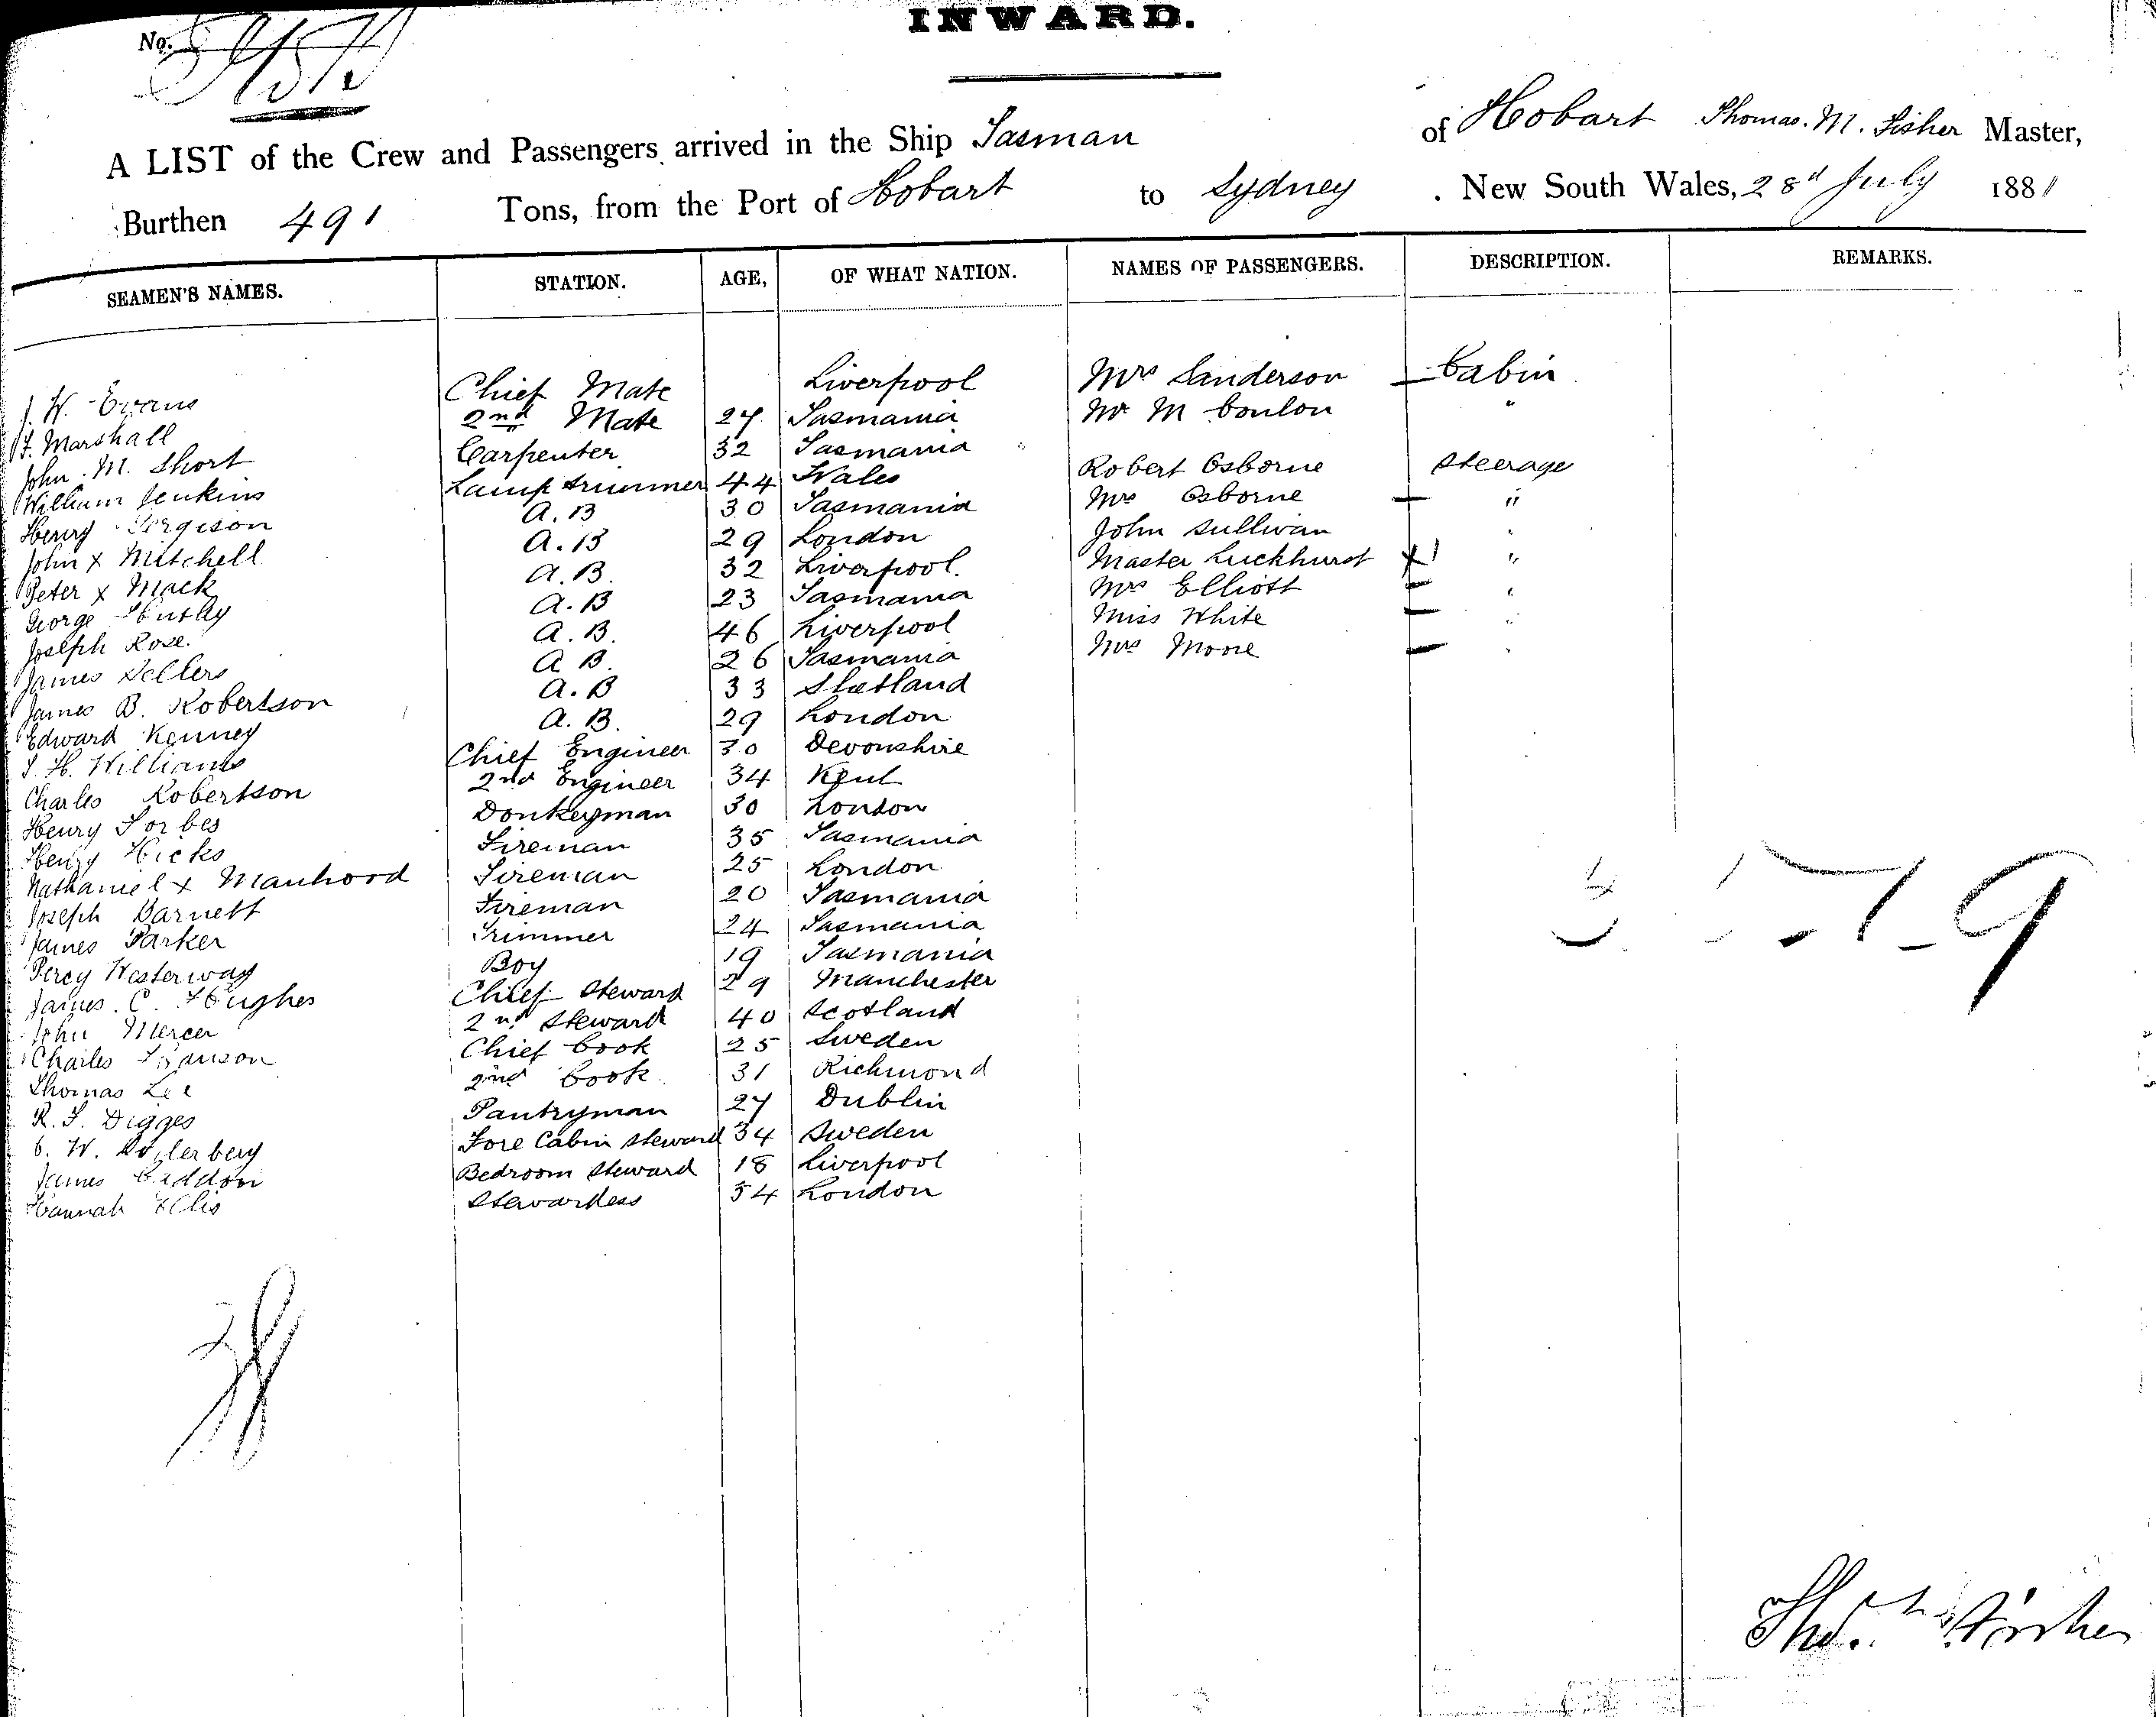 INWARD.
No.
A LIST of the Crew and Passengers arrived in the Ship Tasman of Hobart Thomas. M. Fisher Master,
Burthen 491 Tons, from the Port of Hobart to Sydney . New South Wales, 28th July 1881
SEAMEN'S NAMES. STATION. AGE, OF WHAT NATION. NAMES OF PASSENGERS. DESCRIPTION. REMARKS.
J. W. Evans Chief Mate Liverpool Mrs Sanderson Cabin
Marshall 2nd Mate 27 Tasmania Mr M Conlon "
John. M. Short Carpenter 32 Tasmania
William Jenkins Lamp trimmer 44 Wales Robert Osborne Steerage
Henry Fergison A.B 30 Tasmania Mrs Osborne "
John x Mitchell A.B 29 London John Sullivan
Peter x Mack A.B. 32 Liverpool. Master Luckhurst "
George A.B 23 Tasmania Mrs Elliott "
Joseph Rose. A.B. 46 Liverpool Miss White "
James Sellers A B. 26 Tasmania Mrs Moore "
James B. Robertson A.B 33 Shetland
Edward Kenney A.B. 29 London
J. H. Williams Chief Engineer 30 Devonshire
Charles Robertson 2nd Engineer 34 Kent
Henry Forbes Donkeyman 30 London
Henry Hicks Fireman 35 Tasmania
Nathaniel x Manhood Fireman 25 London
Joseph Barnett Fireman 20 Tasmania
James Parker Trimmer 24 Tasmania
Percy Westerway Boy 19 Tasmania
James. C. Hughes Chief Steward 29 Manchester
John Mercer 2nd Steward 40 Scotland
Charles Chief Cook 25 Sweden
Thomas Lee 2nd Cook 31 Richmond
Digges Pantryman 27 Dublin
C. W. Fore Cabin Steward 34 Sweden
James Caddon Bedroom Steward 18 Liverpool
Hannah Ellis Stewardess 34 London
9
Thos. M. Fisher